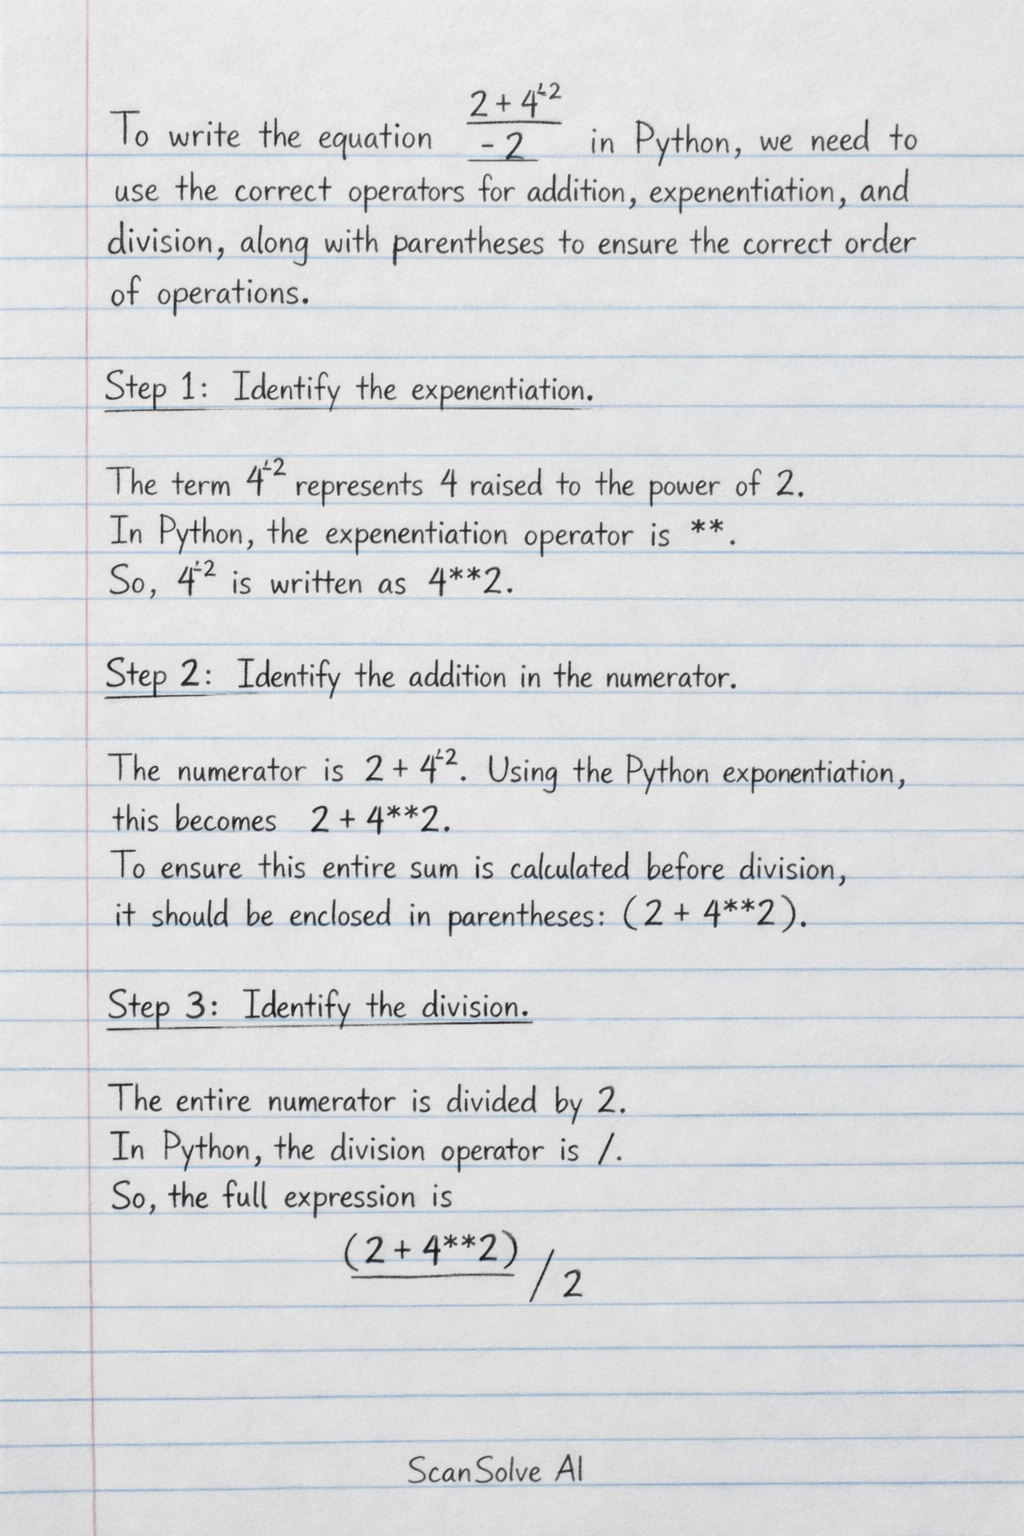 To write the equation 2 + 4^-2 / -2 in Python, we need to
use the correct operators for addition, expenentiation, and
division, along with parentheses to ensure the correct order
of operations.
Step 1: Identify the expenentiation.
The term 4^-2 represents 4 raised to the power of 2.
In Python, the expenentiation operator is **.
So, 4^-2 is written as 4**2.
Step 2: Identify the addition in the numerator.
The numerator is 2 + 4^-2. Using the Python exponentiation,
this becomes 2 + 4**2.
To ensure this entire sum is calculated before division,
it should be enclosed in parentheses: (2 + 4**2).
Step 3: Identify the division.
The entire numerator is divided by 2.
In Python, the division operator is /.
So, the full expression is
(2 + 4**2) / 2
ScanSolve AI